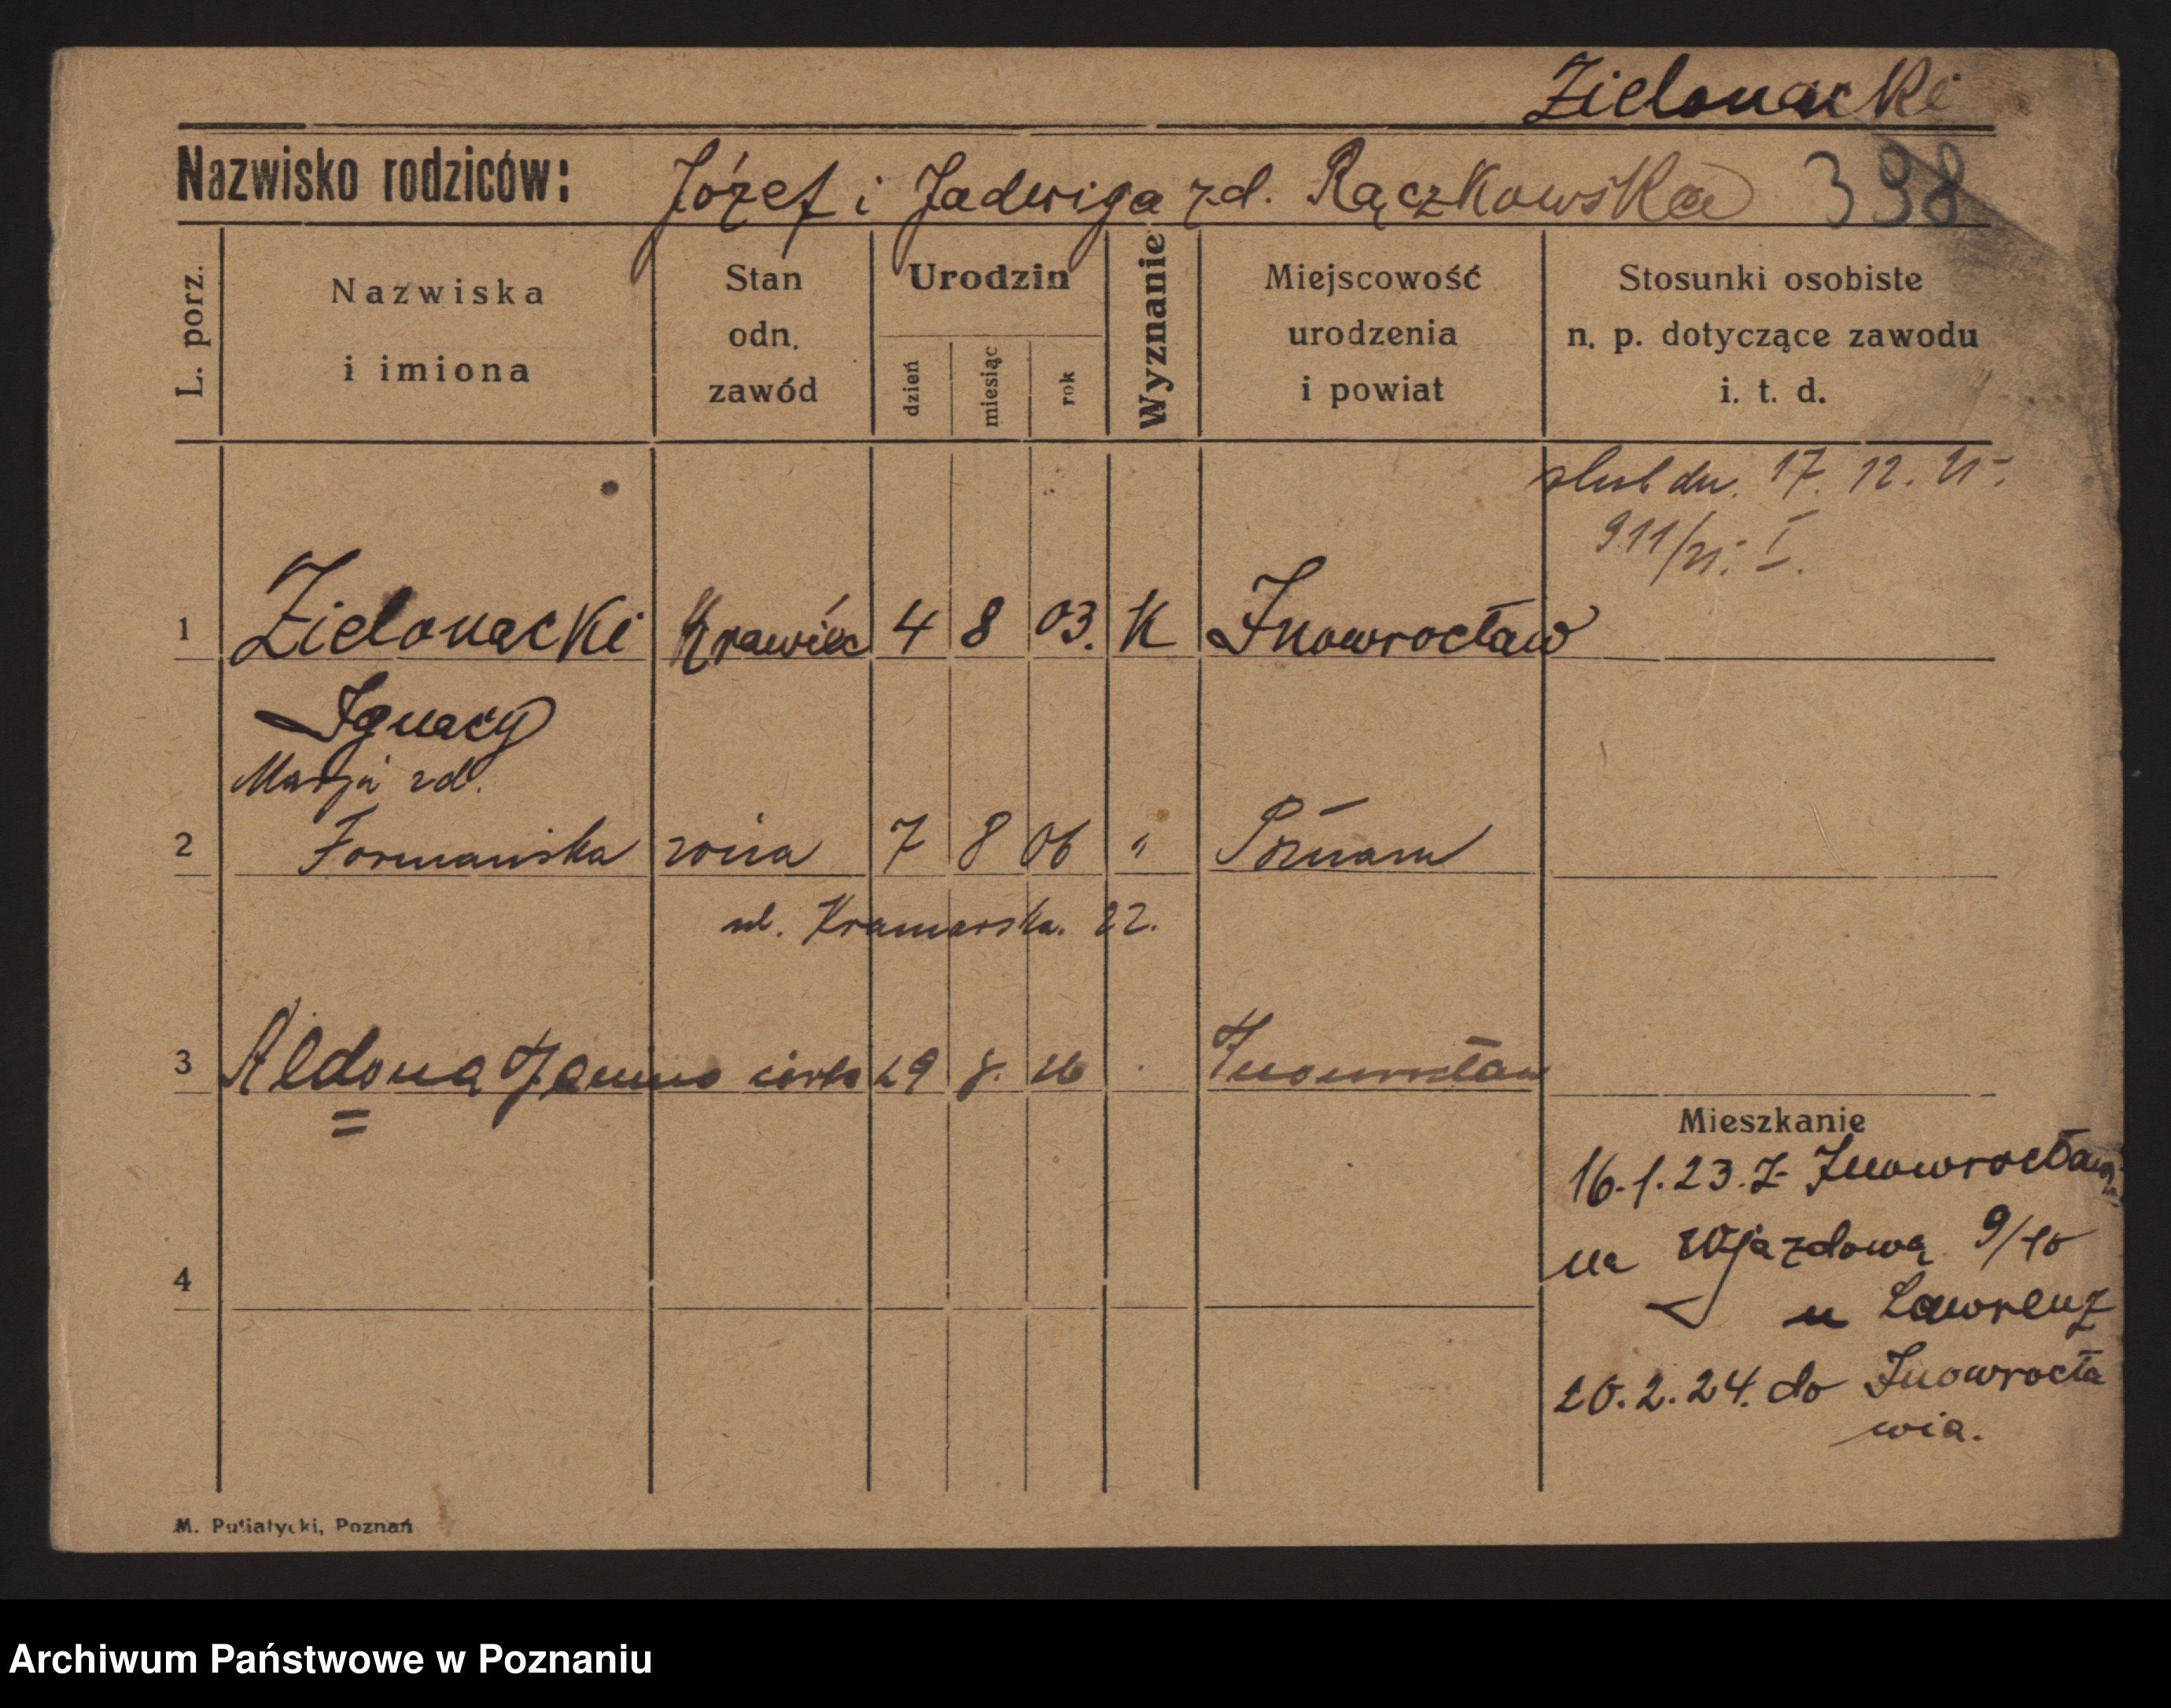 Zielonacki
Nazwisko rodziców: Józef i Jadwiga zd. Rączkowska 398
L. porz.
Nazwiska
i imiona
Stan
odn.
zawód
Urodzin
dzień
miesiąc
rok
Wyznanie
Miejscowość
urodzenia
i powiat
Stosunki osobiste
n. p. dotyczące zawodu
i. t. d.
ślub dn. 17. 12. 25.
911/25. I.
1 Zielonacki Krawiec 4 8 03. K Inowrocław
Ignacy
Marja zd.
2 Formańska żona 7 8 06 " Poznań
ul. Kramarska. 22.
3 Aldona Janina córka 29 8. 26 Inowrocław
Mieszkanie
16.1.23. z Inowrocławia
na Wjazdową 9/10
u Lawrenz
4
20.2.24. do Inowrocła
wia.
M. Putiatycki, Poznań
Archiwum Państwowe w Poznaniu